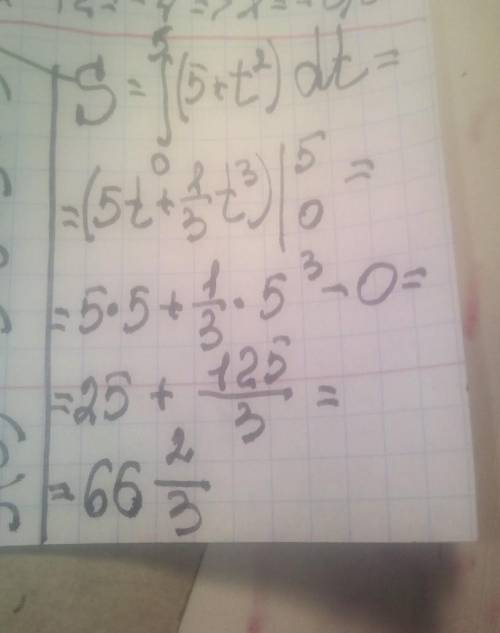 S = ∫₀⁵ (5 + t²) dt =
= (5t + 1/3 t³) |₀⁵ =
= 5·5 + 1/3 · 5³ - 0 =
= 25 + 125/3 =
= 66 2/3